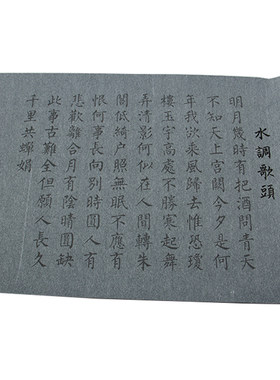 水調歌頭
明月幾時有把酒問青天
不知天上宮闕今夕是何
年我欲乘風歸去惟恐瓊
樓玉宇高處不勝寒起舞
弄清影何似在人間轉朱
閣低綺户照無眠不應有
恨何事長向別時圓人有
悲歡離合月有陰晴圓缺
此事古難全但願人長久
千里共嬋娟